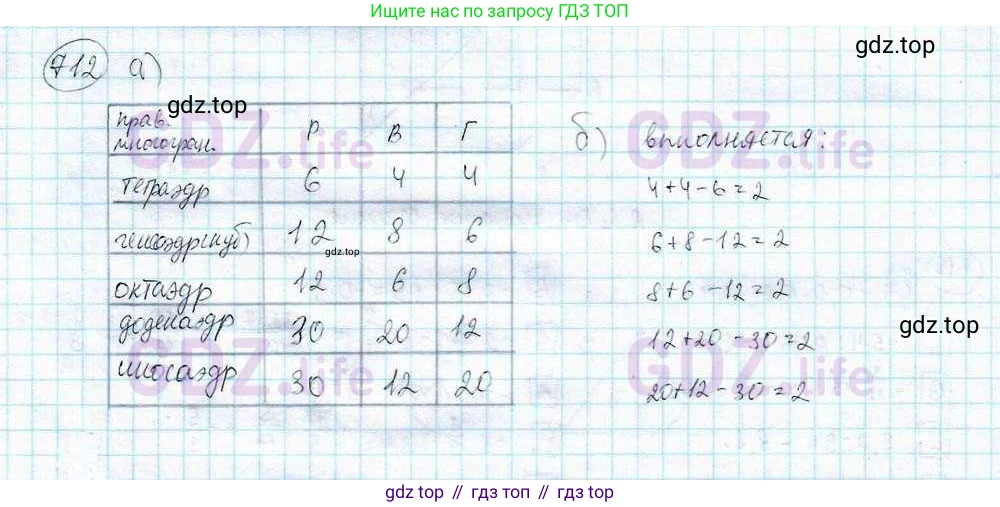 Ищите нас по запросу ГДЗ ТОП
gdz.top
712 а)
gdz.top
GDZ.life
GDZ.life
прав. многогран. Р В Г
тетраэдр 6 4 4
гексаэдр(куб) 12 8 6
gdz.top
октаэдр 12 6 8
додекаэдр 30 20 12
икосаэдр 30 12 20
б) выполняется:
4+4-6=2
6+8-12=2
8+6-12=2
12+20-30=2
20+12-30=2
gdz.top
GDZ.life
GDZ.life
gdz.top // гдз топ // гдз top